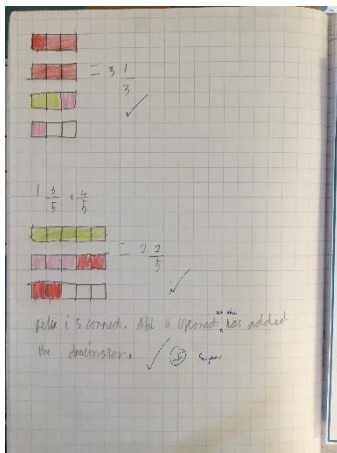 = 3 1/3
1 3/5 + 4/5
= 2 2/5
felix is correct. Abi is incorrect as she has added
the denominator.
Super